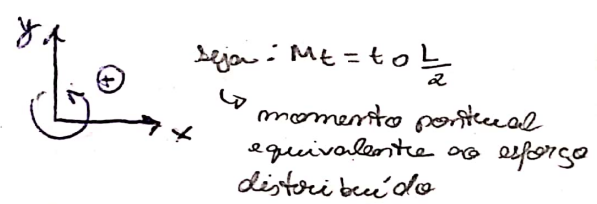 y
+
x
seja: Mt = to L/2
↳ momento pontual
equivalente ao esforço
distribuído